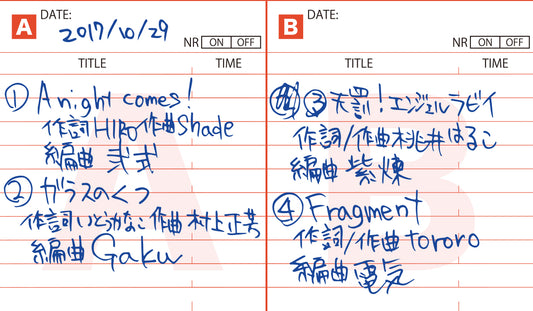 A DATE:
2017/10/29
NR ON OFF
TITLE TIME
① A night comes!
作詞 HIRO 作曲 Shade
編曲 弐式
② ガラスのくつ
作詞 いとうかなこ 作曲 村上正芳
編曲 Gaku
B DATE:
NR ON OFF
TITLE TIME
③ 天罰!エンジェルラビィ
作詞/作曲 桃井はるこ
編曲 紫煉
④ Fragment
作詞/作曲 tororo
編曲 電気